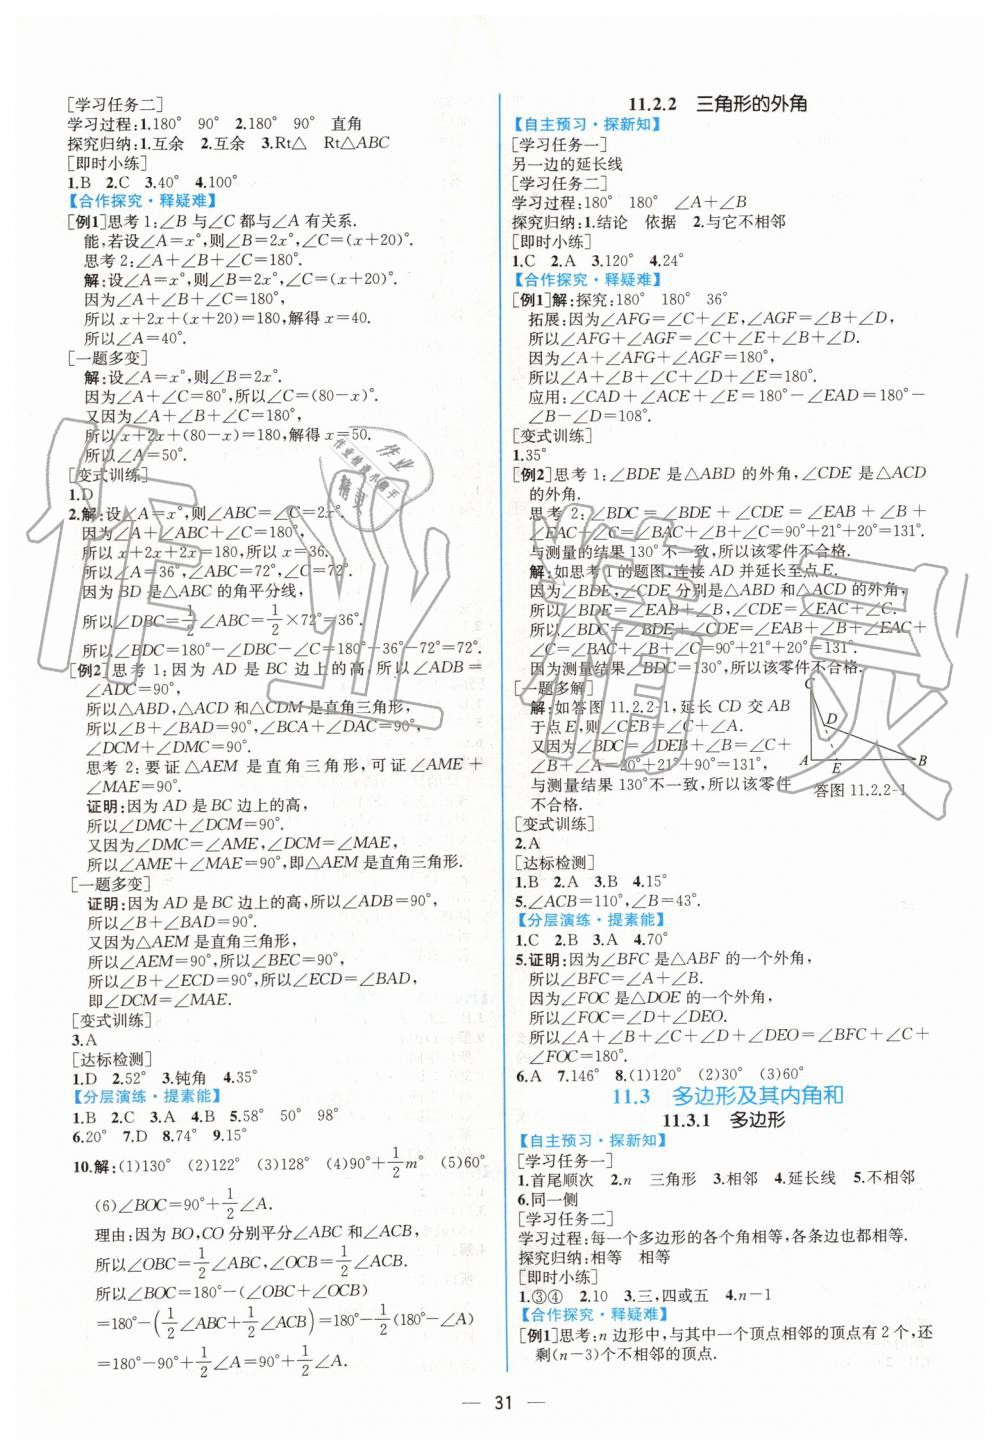 [学习任务二]
学习过程:1.180° 90° 2.180° 90° 直角
探究归纳:1.互余 2.互余 3.Rt△ Rt△ABC
[即时小练]
1.B 2.C 3.40° 4.100°
【合作探究·释疑难】
[例1]思考1:∠B与∠C都与∠A有关系.
能,若设∠A=x°,则∠B=2x°,∠C=(x+20)°.
思考2:∠A+∠B+∠C=180°.
解:设∠A=x°,则∠B=2x°,∠C=(x+20)°.
因为∠A+∠B+∠C=180°,
所以x+2x+(x+20)=180,解得x=40.
所以∠A=40°.
[一题多变]
解:设∠A=x°,则∠B=2x°.
因为∠A+∠C=80°,所以∠C=(80-x)°.
又因为∠A+∠B+∠C=180°,
所以x+2x+(80-x)=180,解得x=50.
所以∠A=50°.
[变式训练]
1.D
2.解:设∠A=x°,则∠ABC=∠C=2x°.
因为∠A+∠ABC+∠C=180°,
所以x+2x+2x=180,所以x=36.
所以∠A=36°,∠ABC=72°,∠C=72°.
因为BD是△ABC的角平分线,
所以∠DBC=1/2∠ABC=1/2×72°=36°.
所以∠BDC=180°-∠DBC-∠C=180°-36°-72°=72°.
[例2]思考1:因为AD是BC边上的高,所以∠ADB=
∠ADC=90°,
所以△ABD,△ACD和△CDM是直角三角形,
所以∠B+∠BAD=90°,∠BCA+∠DAC=90°,
∠DCM+∠DMC=90°.
思考2:要证△AEM是直角三角形,可证∠AME+
∠MAE=90°.
证明:因为AD是BC边上的高,
所以∠DMC+∠DCM=90°.
又因为∠DMC=∠AME,∠DCM=∠MAE,
所以∠AME+∠MAE=90°,即△AEM是直角三角形.
[一题多变]
证明:因为AD是BC边上的高,所以∠ADB=90°,
所以∠B+∠BAD=90°.
又因为△AEM是直角三角形,
所以∠AEM=90°,所以∠BEC=90°,
所以∠B+∠ECD=90°,所以∠ECD=∠BAD,
即∠DCM=∠MAE.
[变式训练]
3.A
[达标检测]
1.D 2.52° 3.钝角 4.35°
【分层演练·提素能】
1.B 2.C 3.A 4.B 5.58° 50° 98°
6.20° 7.D 8.74° 9.15°
10.解:(1)130° (2)122° (3)128° (4)90°+1/2m° (5)60°
(6)∠BOC=90°+1/2∠A.
理由:因为BO,CO分别平分∠ABC和∠ACB,
所以∠OBC=1/2∠ABC,∠OCB=1/2∠ACB,
所以∠BOC=180°-(∠OBC+∠OCB)
=180°-(1/2∠ABC+1/2∠ACB)=180°-1/2(180°-∠A)
=180°-90°+1/2∠A=90°+1/2∠A.
11.2.2 三角形的外角
【自主预习·探新知】
[学习任务一]
另一边的延长线
[学习任务二]
学习过程:180° 180° ∠A+∠B
探究归纳:1.结论 依据 2.与它不相邻
[即时小练]
1.C 2.A 3.120° 4.24°
【合作探究·释疑难】
[例1]解:探究:180° 180° 36°
拓展:因为∠AFG=∠C+∠E,∠AGF=∠B+∠D,
所以∠AFG+∠AGF=∠C+∠E+∠B+∠D.
因为∠A+∠AFG+∠AGF=180°,
所以∠A+∠B+∠C+∠D+∠E=180°.
应用:∠CAD+∠ACE+∠E=180°-∠EAD=180°-
∠B-∠D=108°.
[变式训练]
1.35°
[例2]思考1:∠BDE是△ABD的外角,∠CDE是△ACD
的外角.
思考2:∠BDC=∠BDE+∠CDE=∠EAB+∠B+
∠EAC+∠C=∠BAC+∠B+∠C=90°+21°+20°=131°.
与测量的结果130°不一致,所以该零件不合格.
解:如思考1的题图,连接AD并延长至点E.
因为∠BDE,∠CDE分别是△ABD和△ACD的外角,
所以∠BDE=∠EAB+∠B,∠CDE=∠EAC+∠C.
所以∠BDC=∠BDE+∠CDE=∠EAB+∠B+∠EAC
+∠C=∠BAC+∠B+∠C=90°+21°+20°=131°.
因为测量结果∠BDC=130°,所以该零件不合格.
[一题多解]
解:如答图11.2.2-1,延长CD交AB
于点E,则∠CEB=∠C+∠A.
又因为∠BDC=∠DEB+∠B=∠C+
∠B+∠A=20°+21°+90°=131°,
与测量结果130°不一致,所以该零件
不合格.
C
D
A E B
答图11.2.2-1
[变式训练]
2.A
[达标检测]
1.B 2.A 3.B 4.15°
5.∠ACB=110°,∠B=43°.
【分层演练·提素能】
1.C 2.B 3.A 4.70°
5.证明:因为∠BFC是△ABF的一个外角,
所以∠BFC=∠A+∠B.
因为∠FOC是△DOE的一个外角,
所以∠FOC=∠D+∠DEO.
所以∠A+∠B+∠C+∠D+∠DEO=∠BFC+∠C+
∠FOC=180°.
6.A 7.146° 8.(1)120° (2)30° (3)60°
11.3 多边形及其内角和
11.3.1 多边形
【自主预习·探新知】
[学习任务一]
1.首尾顺次 2.n 三角形 3.相邻 4.延长线 5.不相邻
6.同一侧
[学习任务二]
学习过程:每一个多边形的各个角相等,各条边也都相等.
探究归纳:相等 相等
[即时小练]
1.③④ 2.10 3.三,四或五 4.n-1
【合作探究·释疑难】
[例1]思考:n边形中,与其中一个顶点相邻的顶点有2个,还
剩(n-3)个不相邻的顶点.
— 31 —
作业精灵